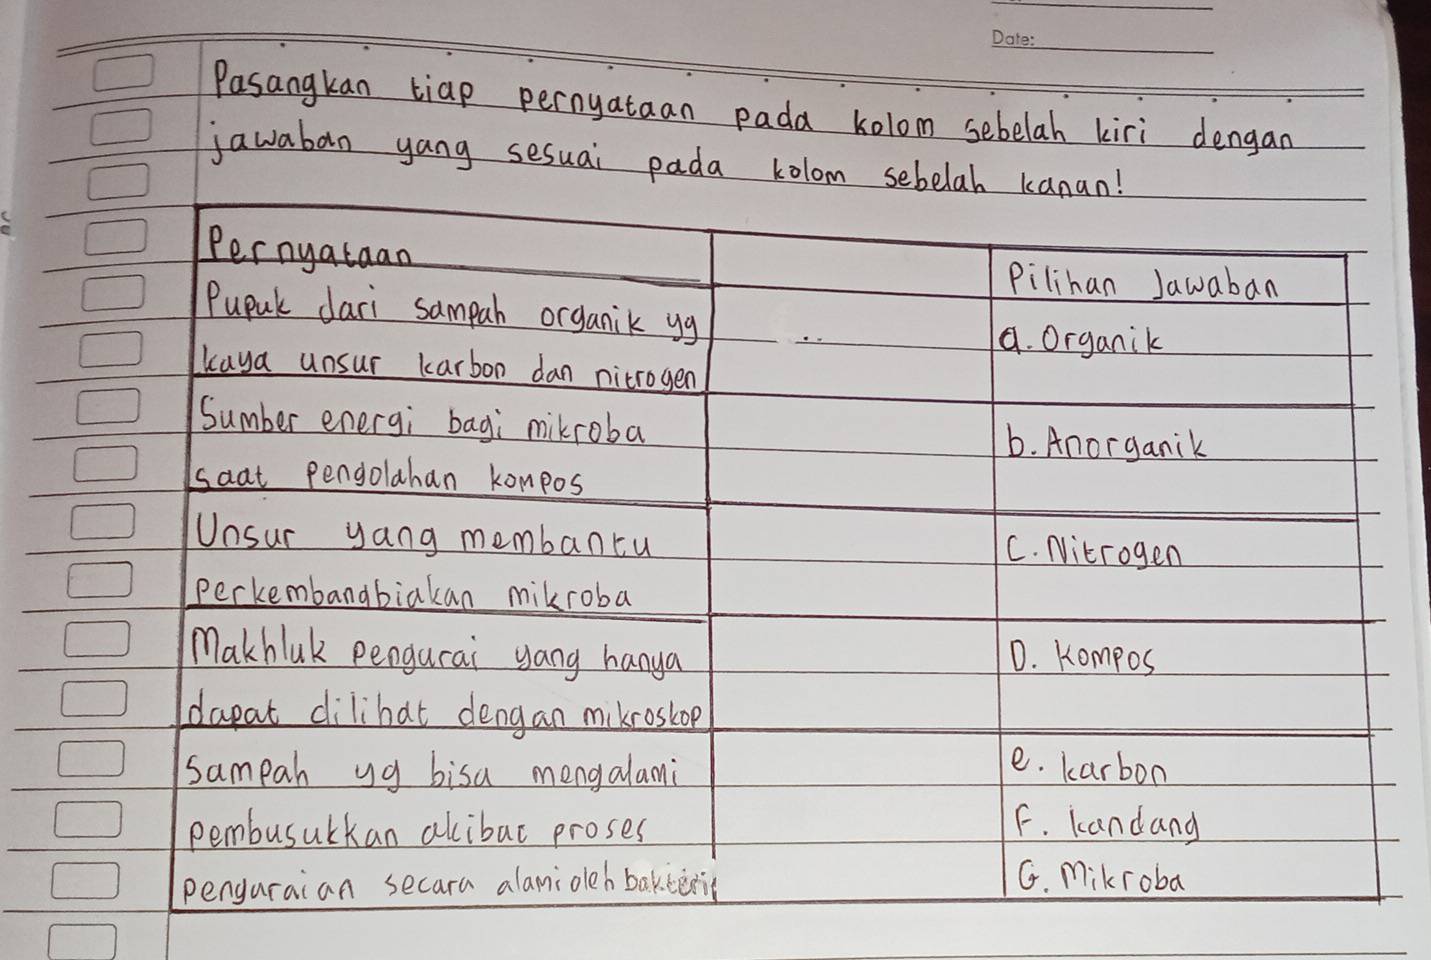 Date:
Pasangkan tiap pernyataan pada kolom sebelah kiri dengan
jawaban yang sesuai pada kolom sebelah kanan!
Pernyataan
Pilihan Jawaban
Pupuk dari sampah organik yg
kaya unsur karbon dan nitrogen
..
a. Organik
Sumber energi bagi mikroba
saat pengolahan kompos
b. Anorganik
Unsur yang membantu
perkembangbiakan mikroba
C. Nitrogen
Makhluk pengurai yang hanya
dapat dilihat dengan mikroskop
D. Kompos
Sampah yg bisa mengalami
pembusukkan akibat proses
penguraian secara alami oleh bakterii
e. karbon
F. kandang
G. Mikroba